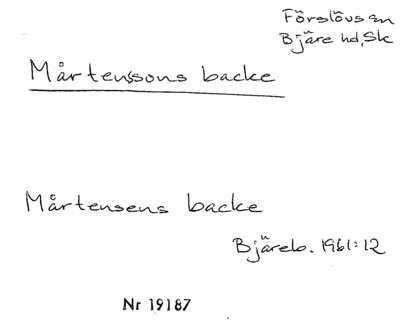 Förslövs sn
Bjäre hd, Sk
Mårtenssons backe
Mårtensens backe
Bjäreb. 1961:12
Nr 19187